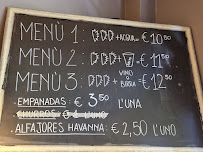 MENÙ 1: + ACQUA € 10,50
MENÙ 2: + € 11,50
MENÙ 3: + VINO O BIRRA € 12,50
EMPANADAS € 3,50 L'UNA
CHURROS
ALFAJORES HAVANNA € 2,50 L'UNO